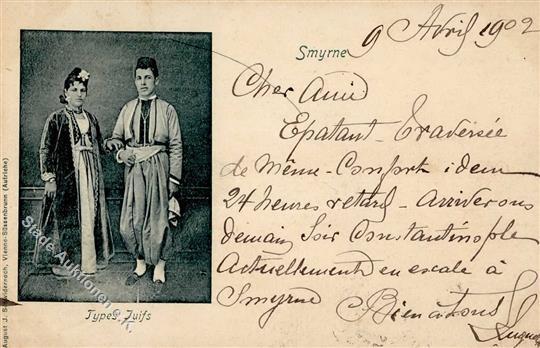 Smyrne 9 Avril 1902
Cher Ami
Epatant - Traversée
de même - Confort idem
24 heures retard - Arriverons
demain Soir Constantinople
Actuellement en escale à
Smyrne Bien à tous
Types Juifs
Vienne-Süssenbrunn (Autriche)
August J.
Stade Auktionen